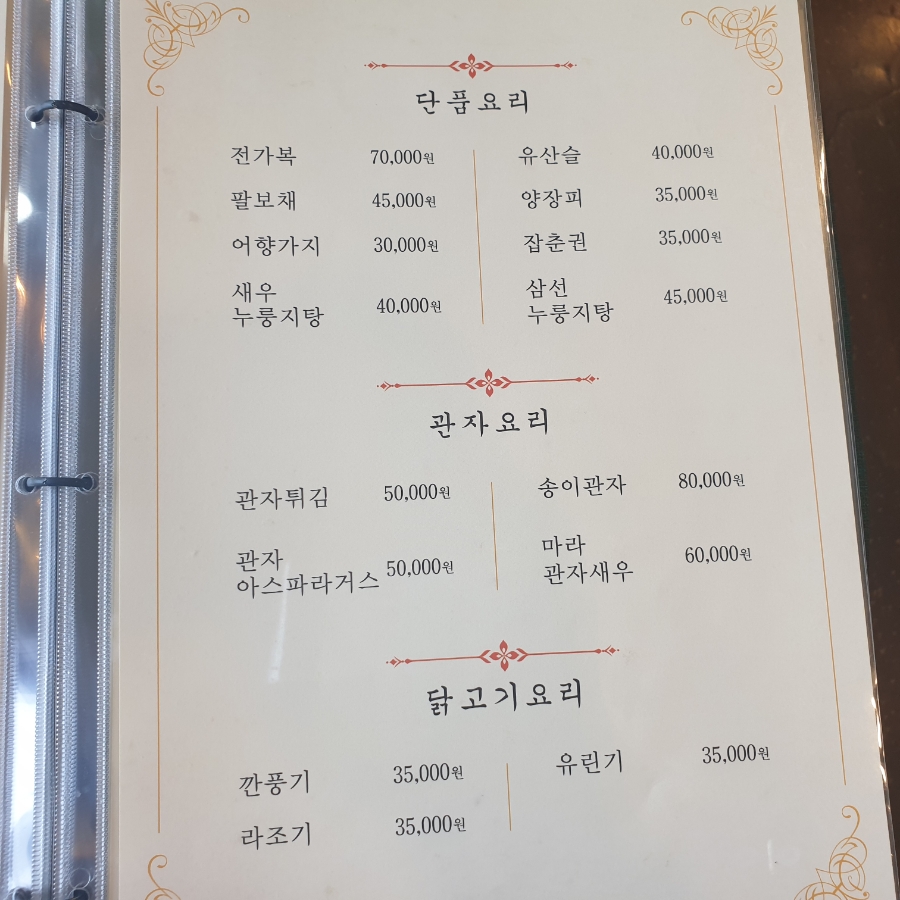 단품요리
전가복 70,000원 유산슬 40,000원
팔보채 45,000원 양장피 35,000원
어향가지 30,000원 잡춘권 35,000원
새우
누룽지탕 40,000원
삼선
누룽지탕 45,000원
관자요리
관자튀김 50,000원 송이관자 80,000원
관자
아스파라거스 50,000원
마라
관자새우 60,000원
닭고기요리
깐풍기 35,000원 유린기 35,000원
라조기 35,000원